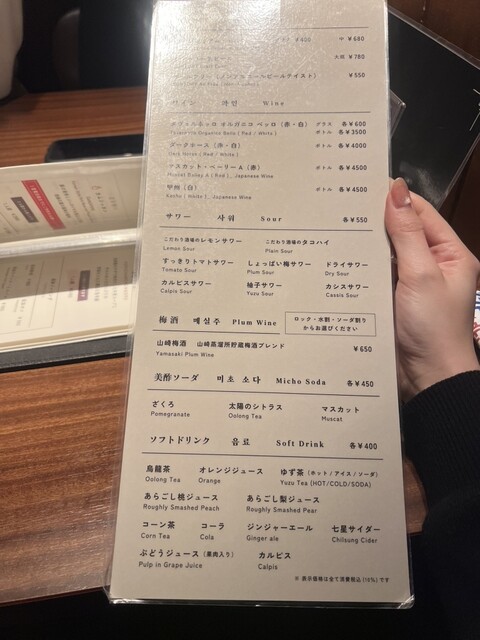 中 ¥680
大瓶 ¥780
¥550
ワイン 와인 Wine
グラス 各¥600
(赤・白)
ボトル 各¥3500
ダークホース (赤・白)
ボトル 各¥4000
Dark Horse ( Red / White )
マスカット・ベーリーA (赤)
ボトル 各¥4500
Muscat Bailey A ( Red ) , Japanese Wine
甲州 (白)
ボトル 各¥4500
Koshu ( White ) , Japanese Wine
サワー 사워 Sour 各¥550
こだわり酒場のレモンサワー こだわり酒場のタコハイ
Lemon Sour Plain Sour
すっきりトマトサワー しょっぱい梅サワー ドライサワー
Tomato Sour Plum Sour Dry Sour
カルピスサワー 柚子サワー カシスサワー
Calpis Sour Yuzu Sour Cassis Sour
梅酒 매실주 Plum Wine
ロック・水割・ソーダ割り
からお選びください
山崎梅酒 山崎蒸溜所貯蔵梅酒ブレンド ¥650
Yamasaki Plum Wine
美酢ソーダ 미초 소다 Micho Soda 各¥450
ざくろ 太陽のシトラス マスカット
Pomegranate Oolong Tea Muscat
ソフトドリンク 음료 Soft Drink 各¥400
烏龍茶 オレンジジュース ゆず茶 (ホット / アイス / ソーダ)
Oolong Tea Orange Yuzu Tea (HOT/COLD/SODA)
あらごし桃ジュース あらごし梨ジュース
Roughly Smashed Peach Roughly Smashed Pear
コーン茶 コーラ ジンジャーエール 七星サイダー
Corn Tea Cola Ginger ale Chilsung Cider
ぶどうジュース (果肉入り) カルピス
Pulp in Grape Juice Calpis
※ 表示価格は全て消費税込 (10%) です